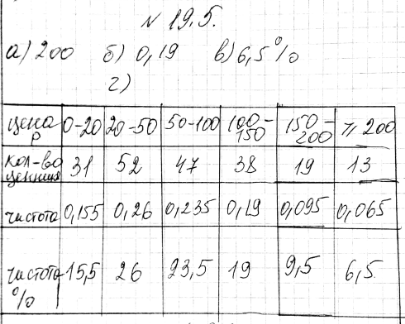 № 19.5.
а) 200 б) 0,19 в) 6,5%
г)
цена р 0-20 20-50 50-100 100-150 150-200 ≥ 200
кол-во ценник 31 52 47 38 19 13
частота 0,155 0,26 0,235 0,19 0,095 0,065
частота % 15,5 26 23,5 19 9,5 6,5